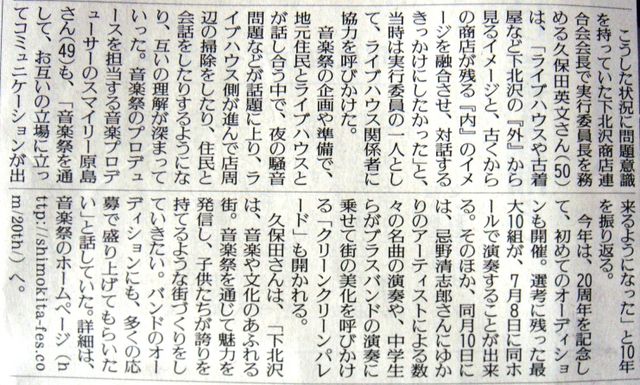 こうした状況に問題意識
を持っていた下北沢商店連
合会会長で実行委員長を務
める久保田英文さん(50)
は、「ライブハウスや古着
屋など下北沢の『外』から
見るイメージと、古くから
の商店が残る『内』のイメ
ージを融合させ、対話する
きっかけにしたかった」と、
当時は実行委員の一人とし
て、ライブハウス関係者に
協力を呼びかけた。
音楽祭の企画や準備で、
地元住民とライブハウスと
が話し合う中で、夜の騒音
問題などが話題に上り、ラ
イブハウス側が進んで店周
辺の掃除をしたり、住民と
会話をしたりするようにな
り、互いの理解が深まって
いった。音楽祭のプロデュ
ースを担当する音楽プロデ
ューサーのスマイリー原島
さん(49)も、「音楽祭を通
して、お互いの立場に立っ
てコミュニケーションが出
来るようになった」と10年
を振り返る。
今年は、20周年を記念し
て、初めてのオーディショ
ンも開催。選考に残った最
大10組が、7月8日に同ホ
ールで演奏することが出来
る。そのほか、同月10日に
は、忌野清志郎さんにゆか
りのアーティストによる数
々の名曲の演奏や、中学生
らがブラスバンドの演奏に
乗せて街の美化を呼びかけ
る「クリーンクリーンパレ
ード」も開かれる。
久保田さんは、「下北沢
は、音楽や文化のあふれる
街。音楽祭を通じて魅力を
発信し、子供たちが誇りを
持てるような街づくりをし
ていきたい。バンドのオー
ディションにも、多くの応
募で盛り上げてもらいた
い」と話していた。詳細は、
音楽祭のホームページ(h
ttp://shimokita-fes.co
m/20th/)へ。